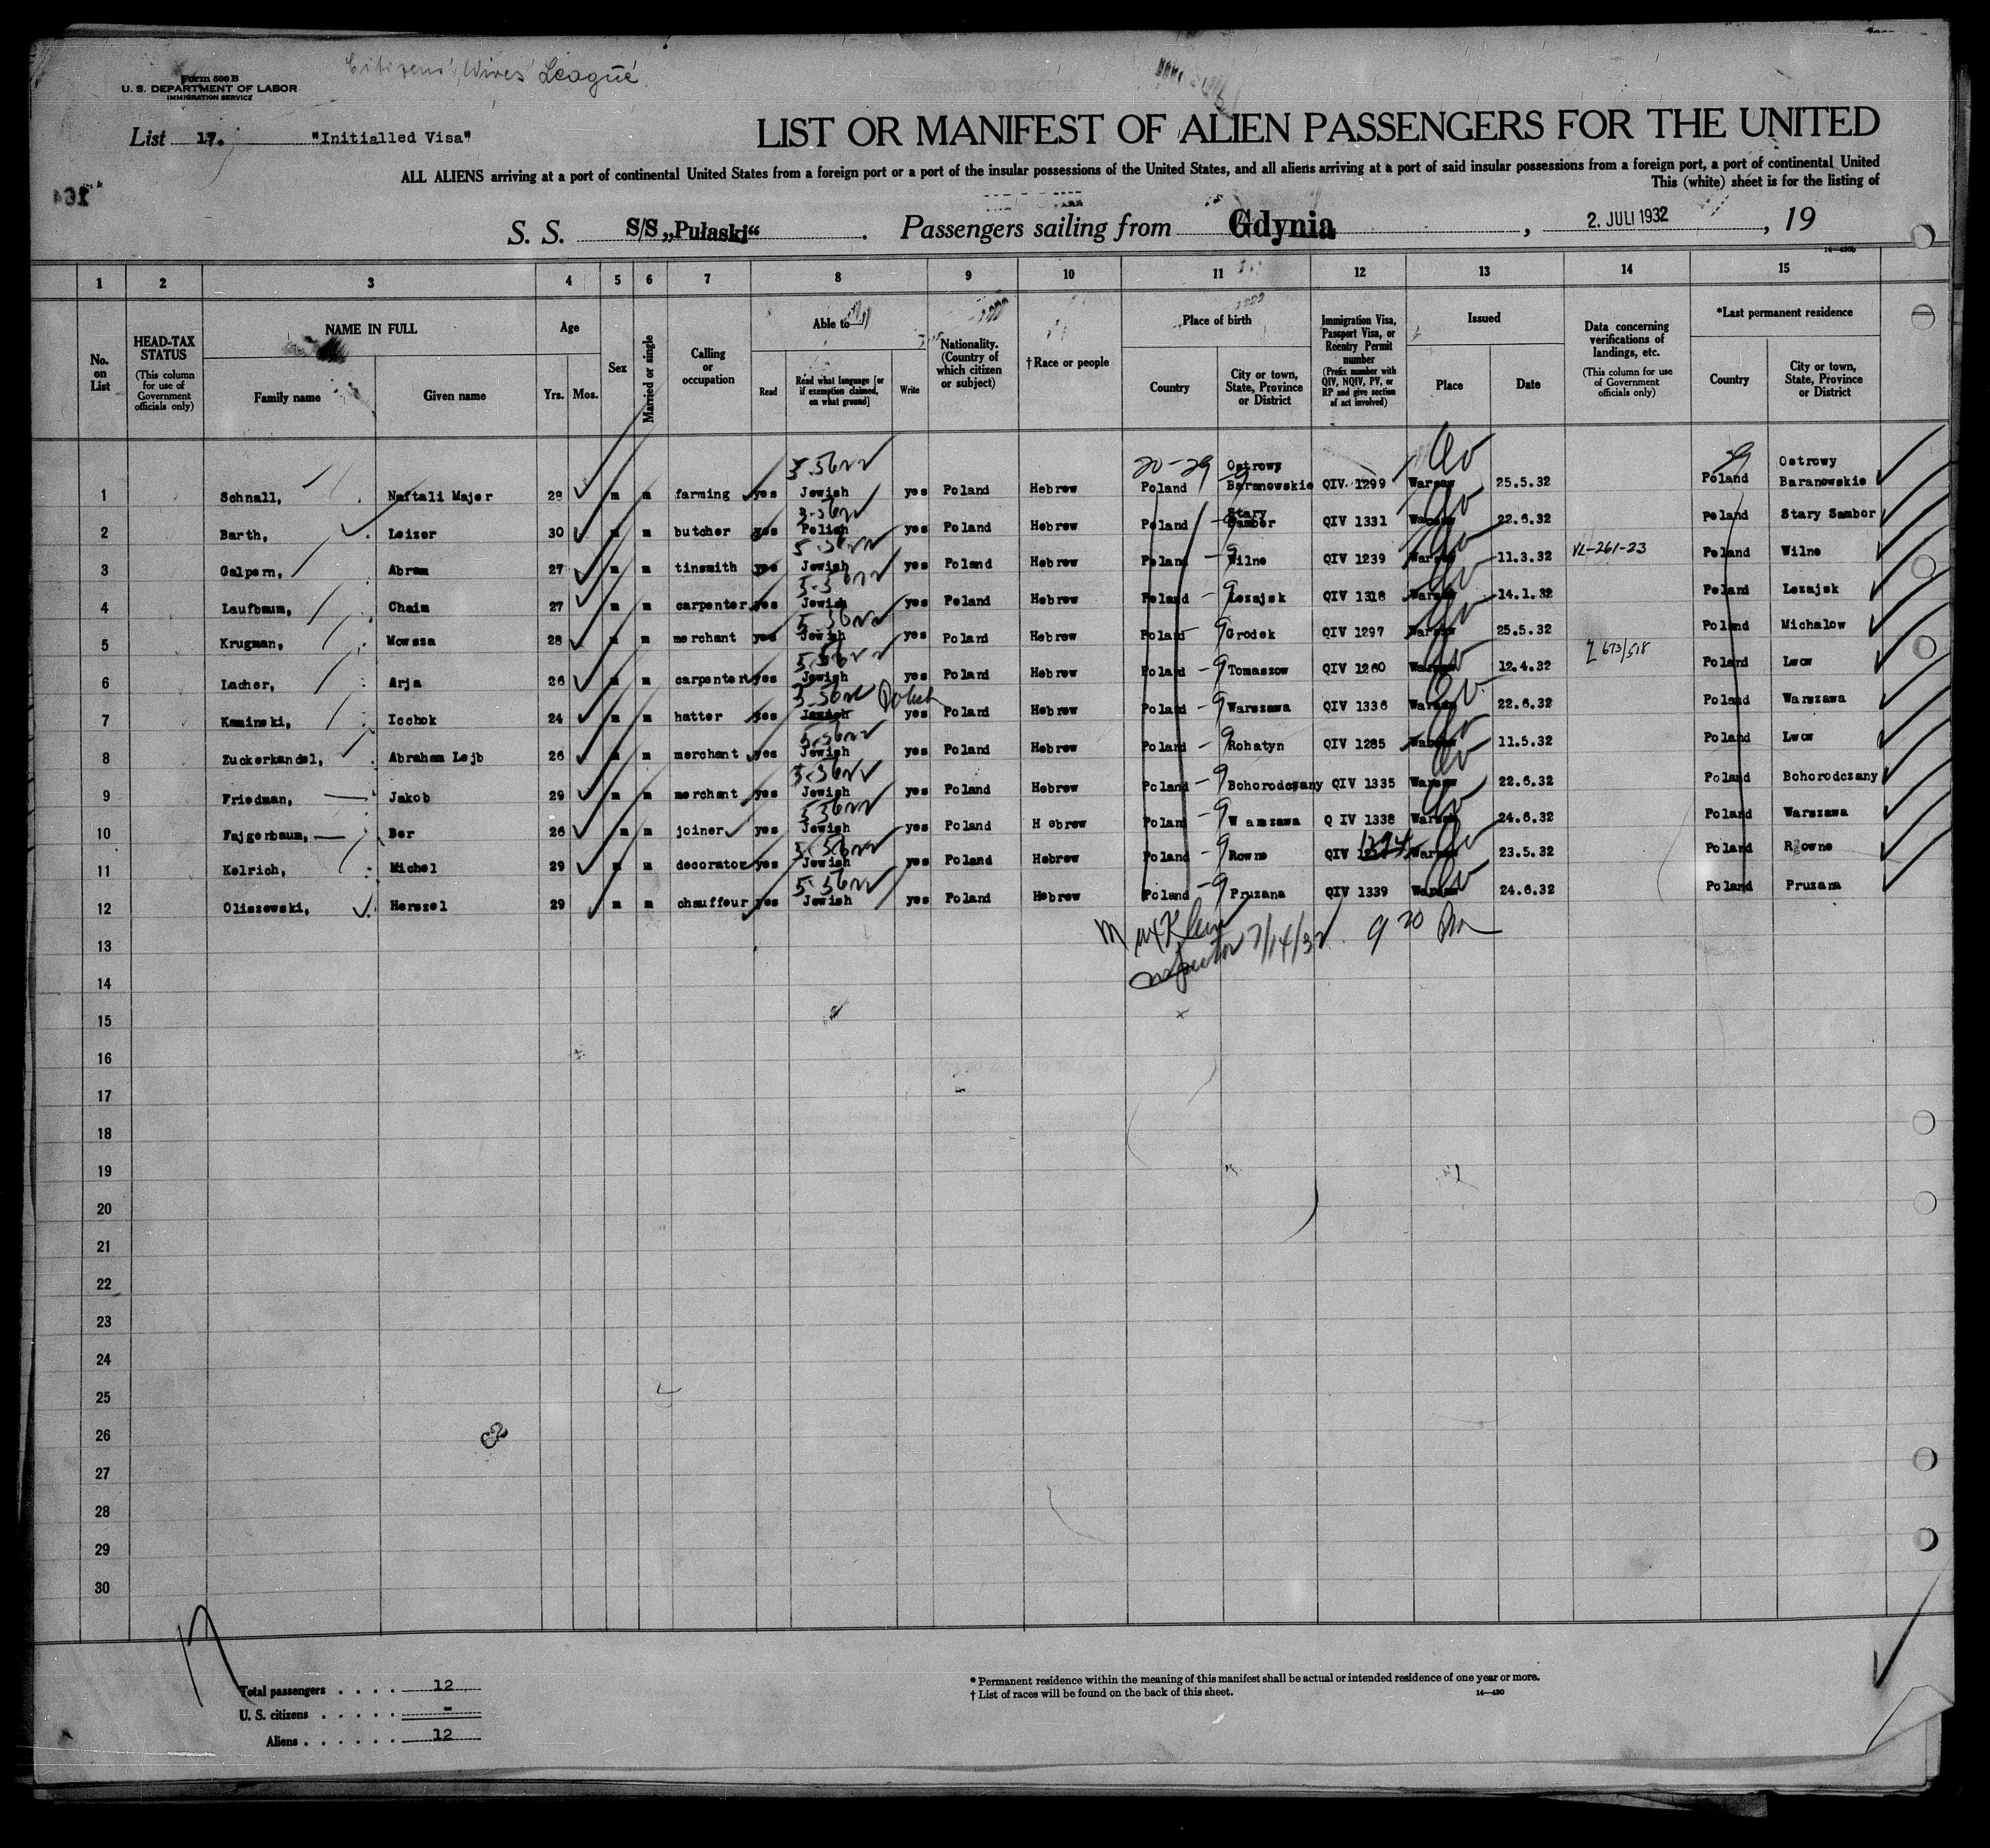 Citizens' Wives' League
Form 500 B
U. S. DEPARTMENT OF LABOR
IMMIGRATION SERVICE
List 17. "Initialled Visa"
LIST OR MANIFEST OF ALIEN PASSENGERS FOR THE UNITED
ALL ALIENS arriving at a port of continental United States from a foreign port or a port of the insular possessions of the United States, and all aliens arriving at a port of said insular possessions from a foreign port, a port of continental United
This (white) sheet is for the listing of
164
S. S. S/S „Pułaski“. Passengers sailing from Gdynia, 2. JULI 1932, 19
14—430b
1 2 3 4 5 6 7 8 9 10 11 12 13 14 15
No. on List
HEAD-TAX STATUS
(This column for use of Government officials only)
NAME IN FULL
Family name Given name
Age
Yrs. Mos.
Sex
Married or single
Calling or occupation
Able to—
Read Read what language [or if exemption claimed, on what ground] Write
Nationality. (Country of which citizen or subject)
†Race or people
Place of birth
Country City or town, State, Province or District
Immigration Visa, Passport Visa, or Reentry Permit number
(Prefix number with QIV, NQIV, PV, or RP and give section of act involved)
Issued
Place Date
Data concerning verifications of landings, etc.
(This column for use of Government officials only)
*Last permanent residence
Country City or town, State, Province or District
20-29 Ostrowy Ostrowy
1 Schnall, Naftali Majer 28 m m farming yes Jewish yes Poland Hebrew Poland Baranowskie QIV 1299 Warsaw 25.5.32 Poland Baranowskie
2 Barth, Leizer 30 m m butcher yes Polish yes Poland Hebrew Poland Stary Sambor QIV 1331 Warsaw 22.6.32 Poland Stary Sambor
3 Galpern, Abram 27 m m tinsmith yes Jewish yes Poland Hebrew Poland Wilno QIV 1239 Warsaw 11.3.32 VL-261-23 Poland Wilno
4 Laufbaum, Chaim 27 m m carpenter yes Jewish yes Poland Hebrew Poland Lezajsk QIV 1318 Warsaw 14.1.32 Poland Lezajsk
5 Krugman, Mowsza 28 m m merchant yes Jewish yes Poland Hebrew Poland Grodek QIV 1297 Warsaw 25.5.32 Poland Michalow
6 Lacher, Arja 26 m m carpenter yes Jewish yes Poland Hebrew Poland Tomaszow QIV 1260 Warsaw 12.4.32 673/518 Poland Lwow
7 Kaminski, Icchok 24 m m hatter yes Jewish Polish yes Poland Hebrew Poland Warszawa QIV 1336 Warsaw 22.6.32 Poland Warszawa
8 Zuckerkandel, Abraham Lejb 26 m m merchant yes Jewish yes Poland Hebrew Poland Rohatyn QIV 1285 Warsaw 11.5.32 Poland Lwow
9 Friedman, Jakob 29 m m merchant yes Jewish yes Poland Hebrew Poland Bohorodczany QIV 1335 Warsaw 22.6.32 Poland Bohorodczany
10 Fajgerbaum, Ber 26 m m joiner yes Jewish yes Poland H ebrew Poland W arszawa Q IV 1338 Warsaw 24.6.32 Poland Warszawa
11 Kelrich, Michel 29 m m decorator yes Jewish yes Poland Hebrew Poland Rowne QIV 1294 Warsaw 23.5.32 Poland Rowne
12 Oliszewski, Herszel 29 m m chauffeur yes Jewish yes Poland Hebrew Poland Pruzana QIV 1339 Warsaw 24.6.32 Poland Pruzana
13 Max Klein 9 20 Pm
14 Inspector 7/14/32
15
16
17
18
19
20
21
22
23
24
25
26
27
28
29
30
17
Total passengers . . . . 12
U. S. citizens . . . . . -
Aliens . . . . . . 12
* Permanent residence within the meaning of this manifest shall be actual or intended residence of one year or more.
† List of races will be found on the back of this sheet. 14—430